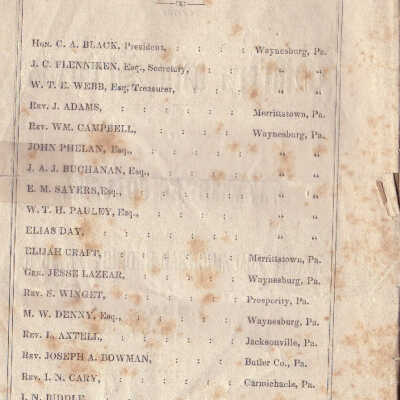 Hon. C. A. BLACK, President, : : : Waynesburg, Pa.
J. C. FLENNIKEN, Esq., Secretary, : : „ „
W. T. E. WEBB, Esq, Treasurer, : : „ „
Rev. J. ADAMS, : : : : Merrittstown, Pa.
Rev. WM. CAMPBELL, : : : Waynesburg, Pa.
JOHN PHELAN, Esq., : : : „ „
J. A. J. BUCHANAN, Esq., : : : „ „
E. M. SAYERS, Esq., : : : : „ „
W. T. H. PAULEY, Esq., : : : „ „
ELIAS DAY, : : : : : „ „
ELIJAH CRAFT, : : : : Merrittstown, Pa.
Gen. JESSE LAZEAR, : : : Waynesburg, Pa.
Rev. S. WINGET, : : : : Prosperity, Pa.
M. W. DENNY, Esq., : : : Waynesburg, Pa.
Rev. L. AXTELL, : : : : Jacksonville, Pa.
Rev. JOSEPH A. BOWMAN, : : : Butler Co., Pa.
Rev. I. N. CARY, : : : : Carmichaels, Pa.
I. N. BIDDLE